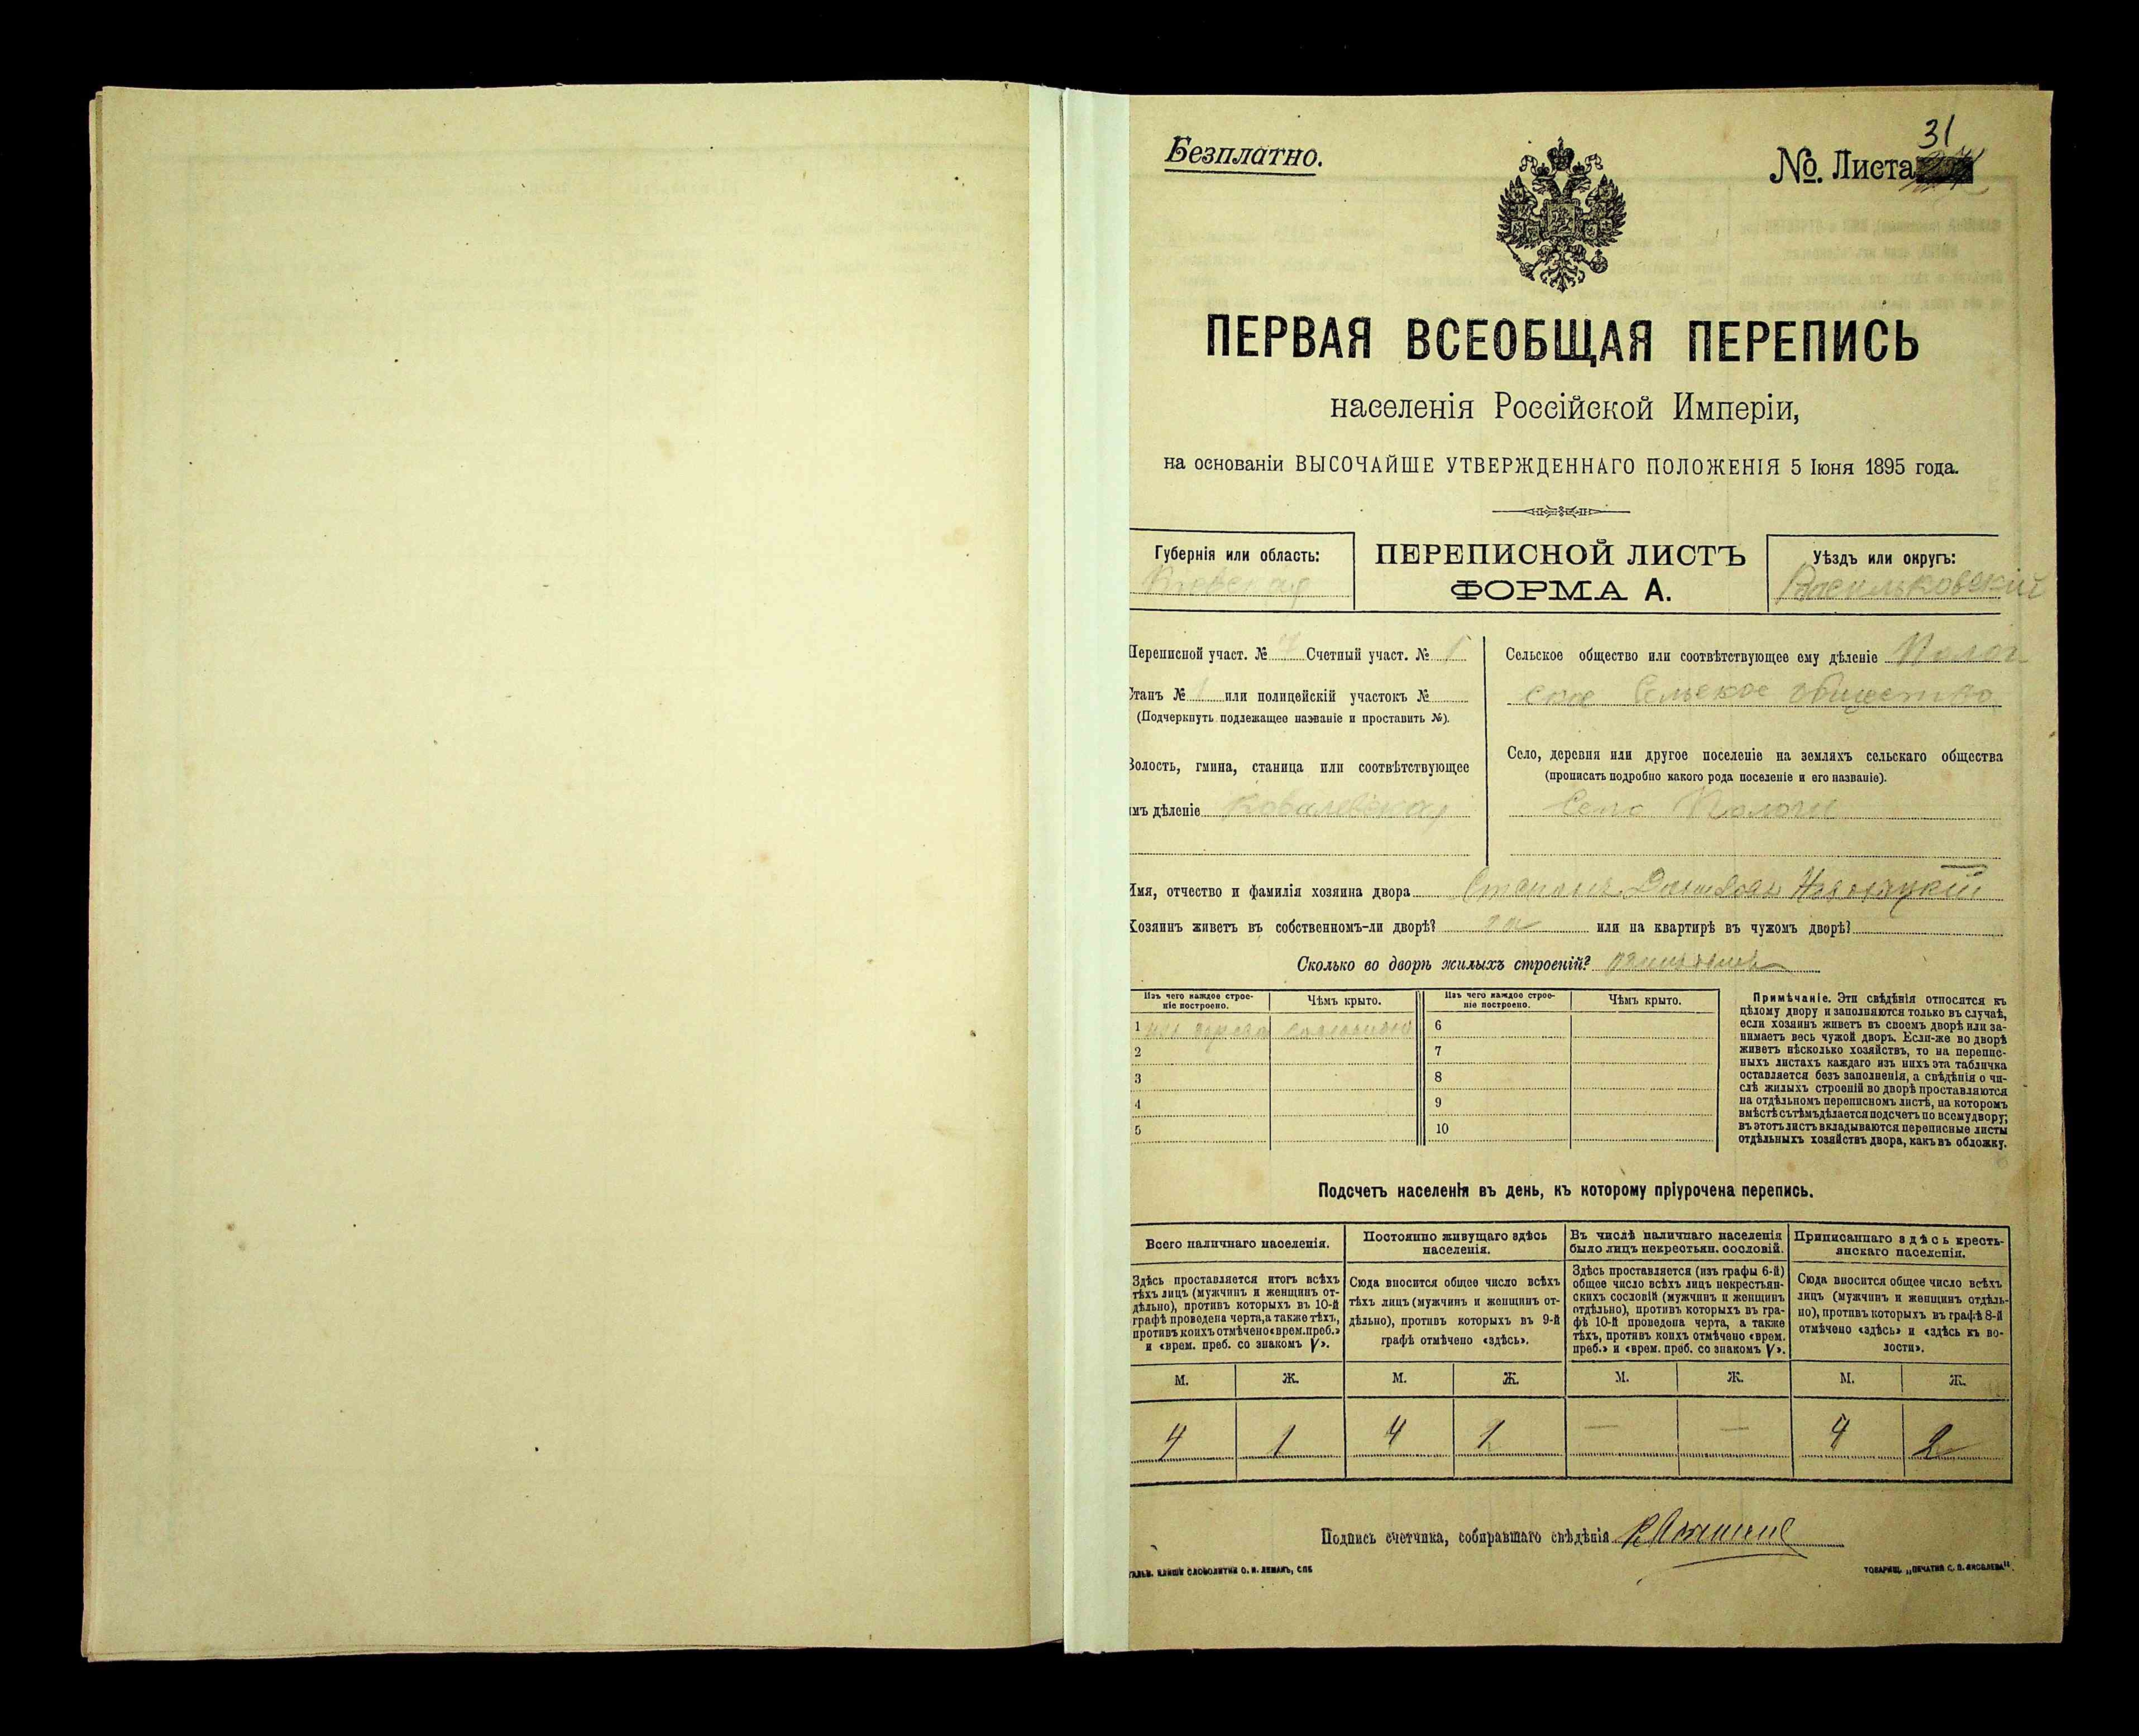 Безплатно.
№. Листа 31
ПЕРВАЯ ВСЕОБЩАЯ ПЕРЕПИСЬ
населенія Россійской Имперіи,
на основаніи ВЫСОЧАЙШЕ УТВЕРЖДЕННАГО ПОЛОЖЕНІЯ 5 Іюня 1895 года.
Губернія или область:
Кіевская
ПЕРЕПИСНОЙ ЛИСТЪ
ФОРМА А.
Уѣздъ или округъ:
Васильковскій
Переписной участ. № 7 Счетный участ. № 1
Станъ № 1 или полицейскій участокъ №
(Подчеркнуть подлежащее названіе и проставить №).
Волость, гмина, станица или соотвѣтствующее
имъ дѣленіе Ковалевская
Сельское общество или соотвѣтствующее ему дѣленіе Полог
ское Сельское общество
Село, деревня или другое поселеніе на земляхъ сельскаго общества
(прописать подробно какого рода поселеніе и его названіе).
Село Пологи
Имя, отчество и фамилія хозяина двора Степанъ
Хозяинъ живетъ въ собственномъ-ли дворѣ? да или на квартирѣ въ чужомъ дворѣ?
Сколько во дворѣ жилыхъ строеній?
Изъ чего каждое строе-
ніе построено.
Чѣмъ крыто.
Изъ чего каждое строе-
ніе построено.
Чѣмъ крыто.
1 изъ дерева соломою 6
2 7
3 8
4 9
5 10
Примѣчаніе. Эти свѣдѣнія относятся къ
цѣлому двору и заполняются только въ случаѣ,
если хозяинъ живетъ въ своемъ дворѣ или за-
нимаетъ весь чужой дворъ. Если-же во дворѣ
живетъ нѣсколько хозяйствъ, то на перепис-
ныхъ листахъ каждаго изъ нихъ эта табличка
оставляется безъ заполненія, а свѣдѣнія о чи-
слѣ жилыхъ строеній во дворѣ проставляются
на отдѣльномъ переписномъ листѣ, на которомъ
вмѣстѣ съ тѣмъ дѣлается подсчетъ по всему двору;
въ этотъ листъ вкладываются переписные листы
отдѣльныхъ хозяйствъ двора, какъ въ обложку.
Подсчетъ населенія въ день, къ которому пріурочена перепись.
Всего наличнаго населенія.
Здѣсь проставляется итогъ всѣхъ
тѣхъ лицъ (мужчинъ и женщинъ от-
дѣльно), противъ которыхъ въ 10-й
графѣ проведена черта, а также тѣхъ,
противъ коихъ отмѣчено «врем. преб.»
и «врем. преб. со знакомъ V».
Постоянно живущаго здѣсь
населенія.
Сюда вносится общее число всѣхъ
тѣхъ лицъ (мужчинъ и женщинъ от-
дѣльно), противъ которыхъ въ 9-й
графѣ отмѣчено «здѣсь».
Въ числѣ наличнаго населенія
было лицъ некрестьян. сословій.
Здѣсь проставляется (изъ графы 6-й)
общее число всѣхъ лицъ некрестьян-
скихъ сословій (мужчинъ и женщинъ
отдѣльно), противъ которыхъ въ гра-
фѣ 10-й проведена черта, а также
тѣхъ, противъ коихъ отмѣчено «врем.
преб.» и «врем. преб. со знакомъ V».
Приписаннаго здѣсь кресть-
янскаго населенія.
Сюда вносится общее число всѣхъ
лицъ (мужчинъ и женщинъ отдѣль-
но), противъ которыхъ въ графѣ 8-й
отмѣчено «здѣсь» и «здѣсь къ во-
лости».
М. Ж. М. Ж. М. Ж. М. Ж.
4 1 4 1 — — 4 2
Подпись счетчика, собиравшаго свѣдѣнія
КЛИШИ СЛОВОЛИТНИ О. И. ЛЕМАНЪ, СПБ
ТОВАРИЩ. „ПЕЧАТНЯ С. П. ЯКОВЛЕВА“.